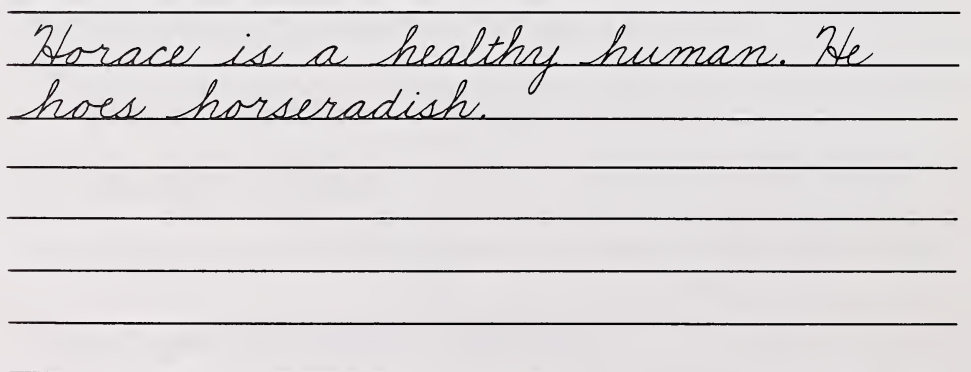 Horace is a healthy human. He
hoes horseradish.